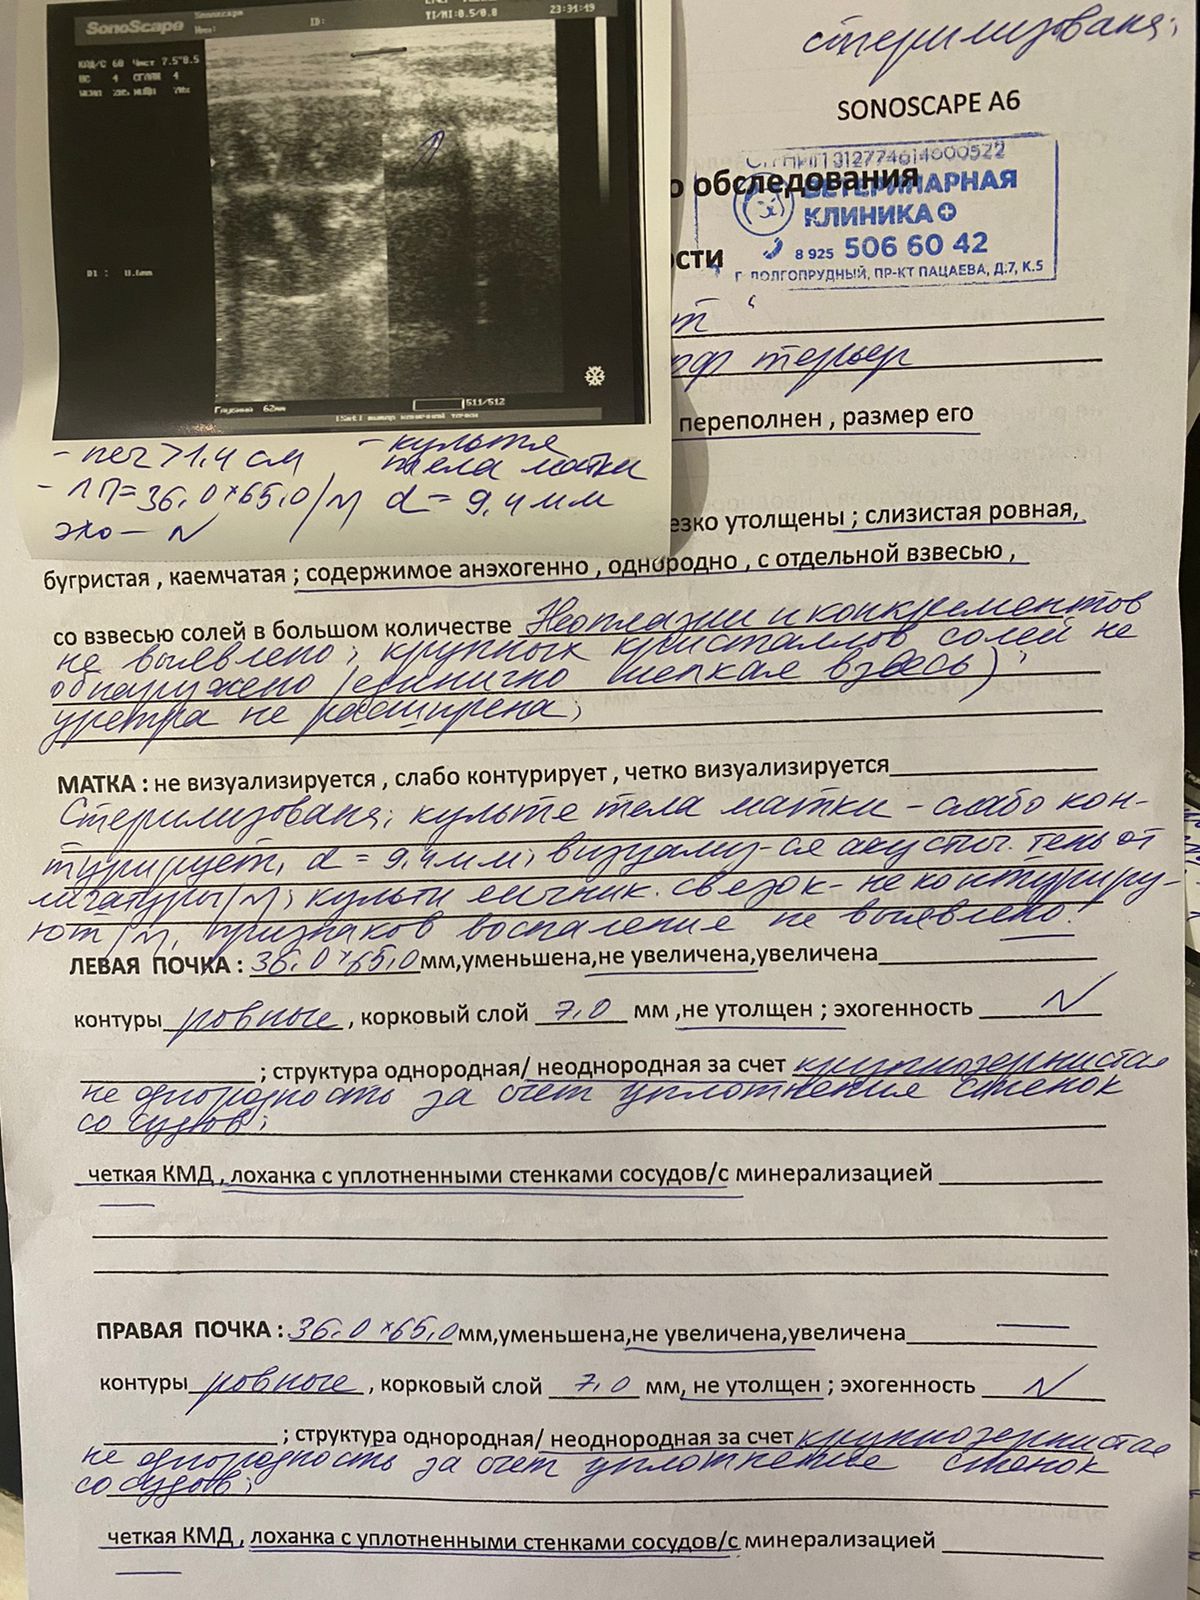 SonoScape
Sonoscape
ID:
TI/MI:0.5/0.8
23:31:19
D1 :
Глубина 62мм
511/512
- печ > 1,4 см
- культя
тела матки
- ЛП = 36,0 × 65,0 /N
d = 9,4 мм
эхо – N
стерилизована;
SONOSCAPE A6
312774614600522
о обследования
ВЕТЕРИНАРНАЯ
КЛИНИКА
8 925 506 60 42
Г. ДОЛГОПРУДНЫЙ, ПР-КТ ПАЦАЕВА, Д.7, К.5
ости
терьер
переполнен , размер его
езко утолщены ; слизистая ровная,
бугристая , каемчатая ; содержимое анэхогенно , однородно , с отдельной взвесью ,
со взвесью солей в большом количестве Неоплазии и конкрементов
не выявлено; крупных кристаллов солей не
обнаружено (единично мелкая взвесь) ;
уретра не расширена;
МАТКА : не визуализируется , слабо контурирует , четко визуализируется
Стерилизована; культя тела матки – слабо кон-
турирует, d = 9,4 мм, визуализ-ся акустич. тень от
лигатуры /N; культи яичник. связок - не контуриру-
ют /N, признаков воспаления не выявлено!
ЛЕВАЯ ПОЧКА : 36,0 × 65,0 мм,уменьшена,не увеличена,увеличена
контуры ровные , корковый слой 7,0 мм ,не утолщен ; эхогенность N
; структура однородная/ неоднородная за счет крупнозернистая
неоднородность за счет уплотнения стенок
сосудов;
четкая КМД , лоханка с уплотненными стенками сосудов/с минерализацией
ПРАВАЯ ПОЧКА : 36,0 × 65,0 мм,уменьшена,не увеличена,увеличена
контуры ровные , корковый слой 7,0 мм, не утолщен ; эхогенность N
; структура однородная/ неоднородная за счет крупнозернистая
неоднородность за счет уплотнения стенок
сосудов;
четкая КМД , лоханка с уплотненными стенками сосудов/с минерализацией